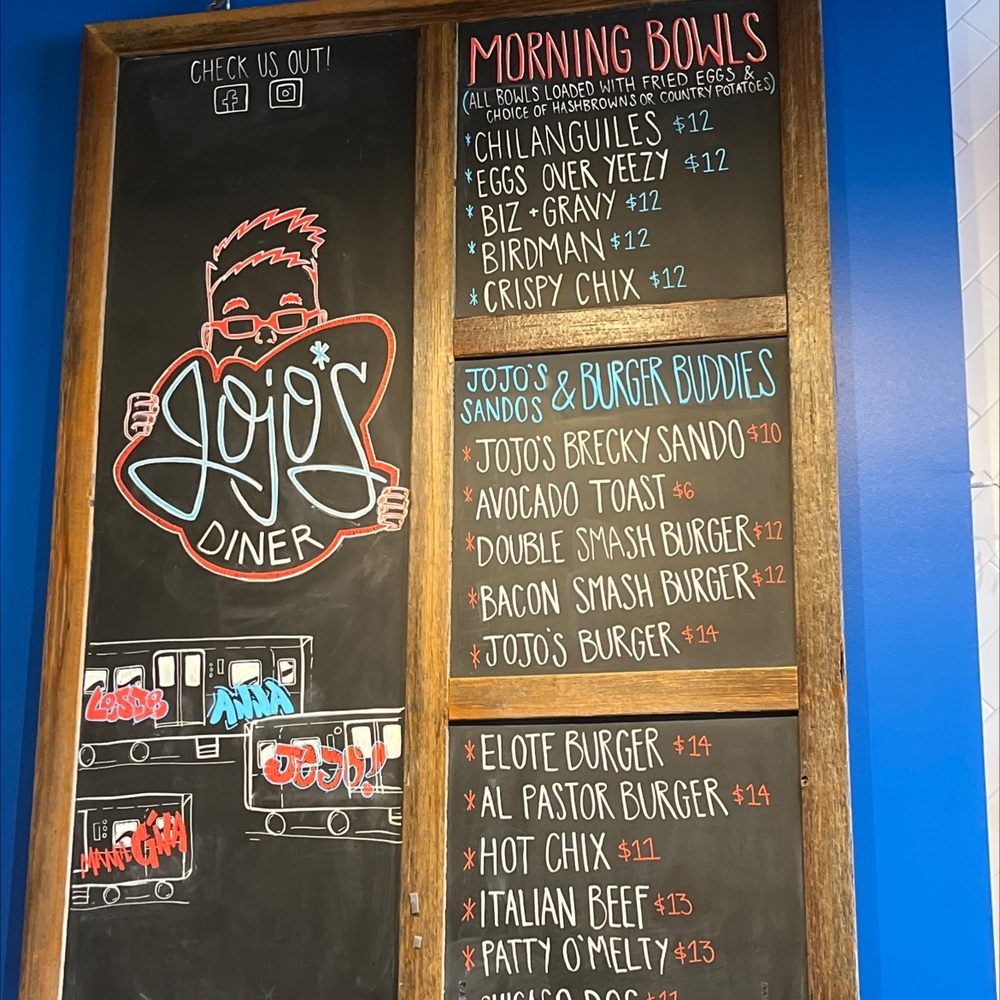 CHECK US OUT!
Jojo*s
DINER
LESDE
ANNA
JOJO!
MAMA GINA
MORNING BOWLS
(ALL BOWLS LOADED WITH FRIED EGGS &
CHOICE OF HASHBROWNS OR COUNTRY POTATOES)
*CHILANGUILES $12
*EGGS OVER YEEZY $12
*BIZ + GRAVY $12
*BIRDMAN $12
*CRISPY CHIX $12
JOJO'S SANDOS & BURGER BUDDIES
*JOJO'S BRECKY SANDO $10
*AVOCADO TOAST $6
*DOUBLE SMASH BURGER $12
*BACON SMASH BURGER $12
*JOJO'S BURGER $14
*ELOTE BURGER $14
*AL PASTOR BURGER $14
*HOT CHIX $11
*ITALIAN BEEF $13
*PATTY O'MELTY $13
CHICAGO DOG $11